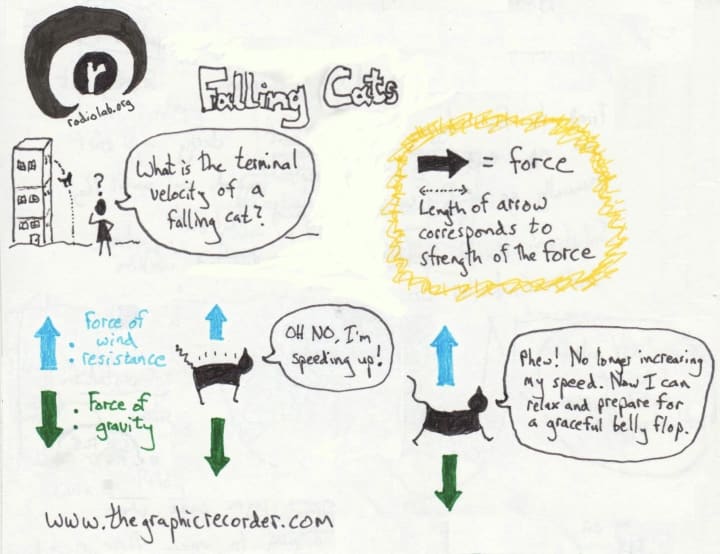 r
radiolab.org
Falling Cats
?
What is the terminal
velocity of a
falling cat?
= force
Length of arrow
corresponds to
strength of the force
: Force of
wind
resistance
: Force of
gravity
OH NO, I'm
speeding up!
Phew! No longer increasing
my speed. Now I can
relax and prepare for
a graceful belly flop.
www.thegraphicrecorder.com